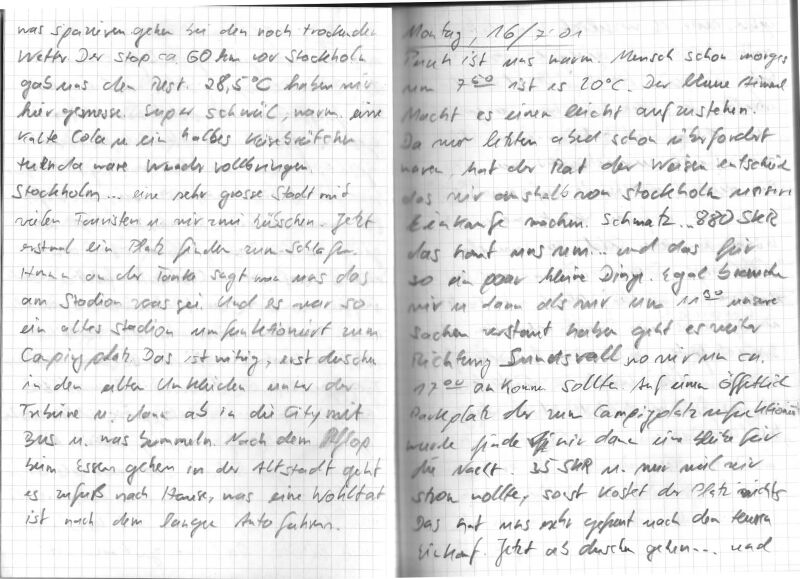 was spazieren gehen bei den noch trockenden
Wetter Der Stop ca 60 km vor Stockholm
gab uns den Rest. 28,5°C haben wir
hier gemesse. Super schwül, warm. eine
Kalte Cola u ein halbes
wäre Wunder vollbringen.
Stockholm... eine sehr grosse Stadt mit
vielen Touristen u. wir zwei hübschen. Jetzt
erstmal ein Platz finden zum Schlafen.
an der Tanke sagt man uns das
am Stadion was sei. Und es war so
ein altes Stadion umfunktioniert zum
Campingplatz Das ist witzig, erst duschen
in den alten Umkleiden unter der
Tribüne u. dann ab in die City mit
Bus u. was bummeln. Nach dem
beim Essen gehen in der Altstadt geht
es zufuß nach Hause, was eine Wohltat
ist nach dem langen Auto fahren.
Montag, 16/7.01
Puuh ist uns warm. Mensch schon morgens
um 7 00 ist es 20°C. Der blaue Himmel
Macht es einen leicht aufzustehen.
Da wir letzten abend schon überfordert
waren, hat der Rat der Weisen entschied
das wir auserhalb von Stockholm unsere
Einkäufe machen. Schmatz... 880 SKR
das haut uns um... und das für
so ein paar kleine Dinge. Egal brauchen
wir u dann als wir um 11 30 unsere
sachen verstaut haben geht es weiter
Richtung Sundsvall wo wir um ca.
17 00 ankommen sollte. Auf einen Öffentlich
Parkplatz der zum Campingplatz umfunktioniert
wurde finde wir dann eine bleibe für
die Nacht. 35 SKR u. nur weil wir
strom wollte, sonst kostet der Platz nichts
Das hat uns sehr gefreut nach den teuren
Einkauf. Jetzt ab duschen gehen... und